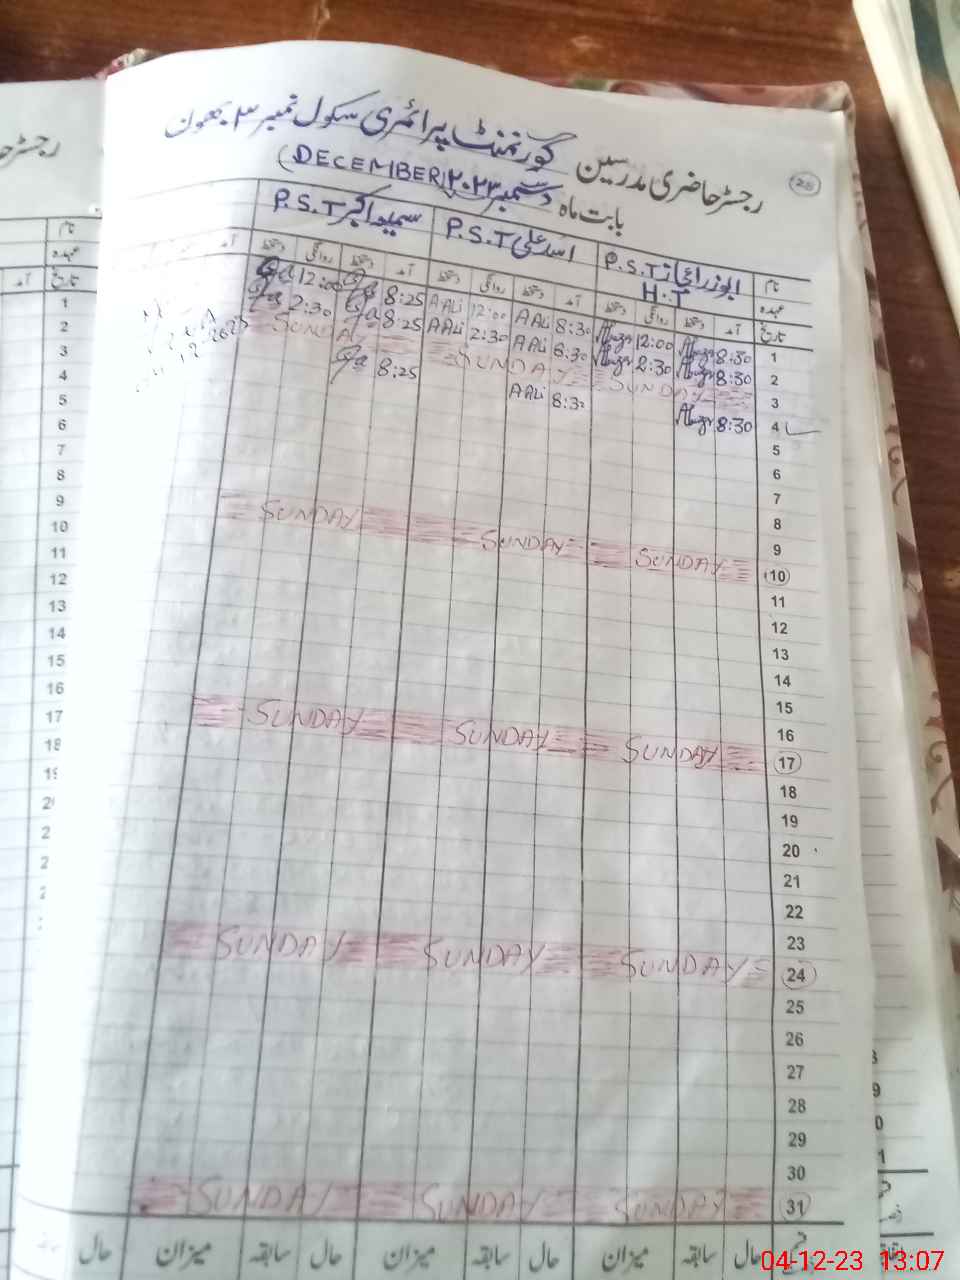 رجسٹر حاضری مدرسین گورنمنٹ پرائمری سکول نمبر ۳ بھون
28
بابت ماہ دسمبر ۲۰۲۳ (DECEMBER)
نام ابوذر P.S.T اسد علی P.S.T اکبر P.S.T
عہدہ H.T
تاریخ آمد دستخط روانگی دستخط آمد دستخط روانگی دستخط آمد دستخط روانگی دستخط
1 8:30 12:00 8:30 AALi 12:00 AALi 8:25 12:00
2 8:30 2:30 8:30 AALi 2:30 AALi 8:25 2:30
3 SUNDAY SUNDAY SUNDAY
4 8:30 8:30 AALi 8:25
5
6
7
8
9
10 SUNDAY SUNDAY SUNDAY
11
12
13
14
15
16
17 SUNDAY SUNDAY SUNDAY
18
19
20
21
22
23
24 SUNDAY SUNDAY SUNDAY
25
26
27
28
29
30
31 SUNDAY SUNDAY SUNDAY
حال سابقہ میزان حال سابقہ میزان حال سابقہ میزان
رجسٹر
نام
عہدہ
تاریخ آمد
1
2
3
4
5
6
7
8
9
10
11
12
13
14
15
16
17
18
حال
04-12-23 13:07